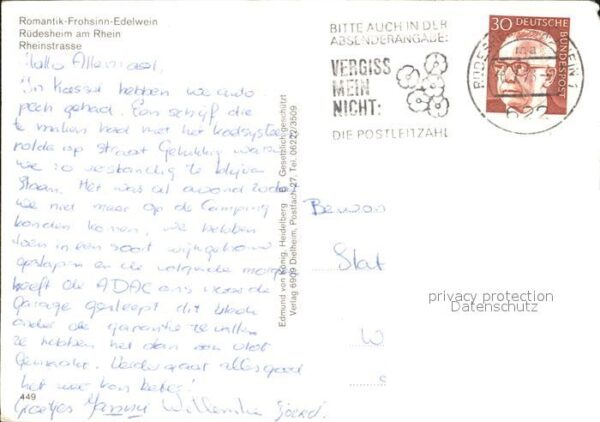 Romantik-Frohsinn-Edelwein
Rüdesheim am Rhein
Rheinstrasse
Hallo Allemaal,
In Kassel hebben we auto
pech gehad. Een schijf die
te maken had met het koelsysteem
rolde op straat Gelukkig waren
we zo verstandig te blijven
staan. Het was al avond zodat
we niet meer op de Camping
konden komen, we hebben
toen in een soort wijngebouw
geslapen en de volgende morgen
heeft de ADAC ons naar de
garage gesleept dit bleek
onder de garantie te vallen
ze hebben het dan ook vlot
gemaakt. Verder gaat alles goed
het kan beter!
Groetjes Willemke Sjoerd.
449
Edmund von König, Heidelberg Gesetzlich geschützt
Verlag 6909 Dielheim, Postfach 27, Tel. 06222/3509
BITTE AUCH IN DER
ABSENDERANGABE:
VERGISS
MEIN
NICHT:
DIE POSTLEITZAHL
30 DEUTSCHE
BUNDESPOST
622
Bewon
Stat
W
s
privacy protection
Datenschutz